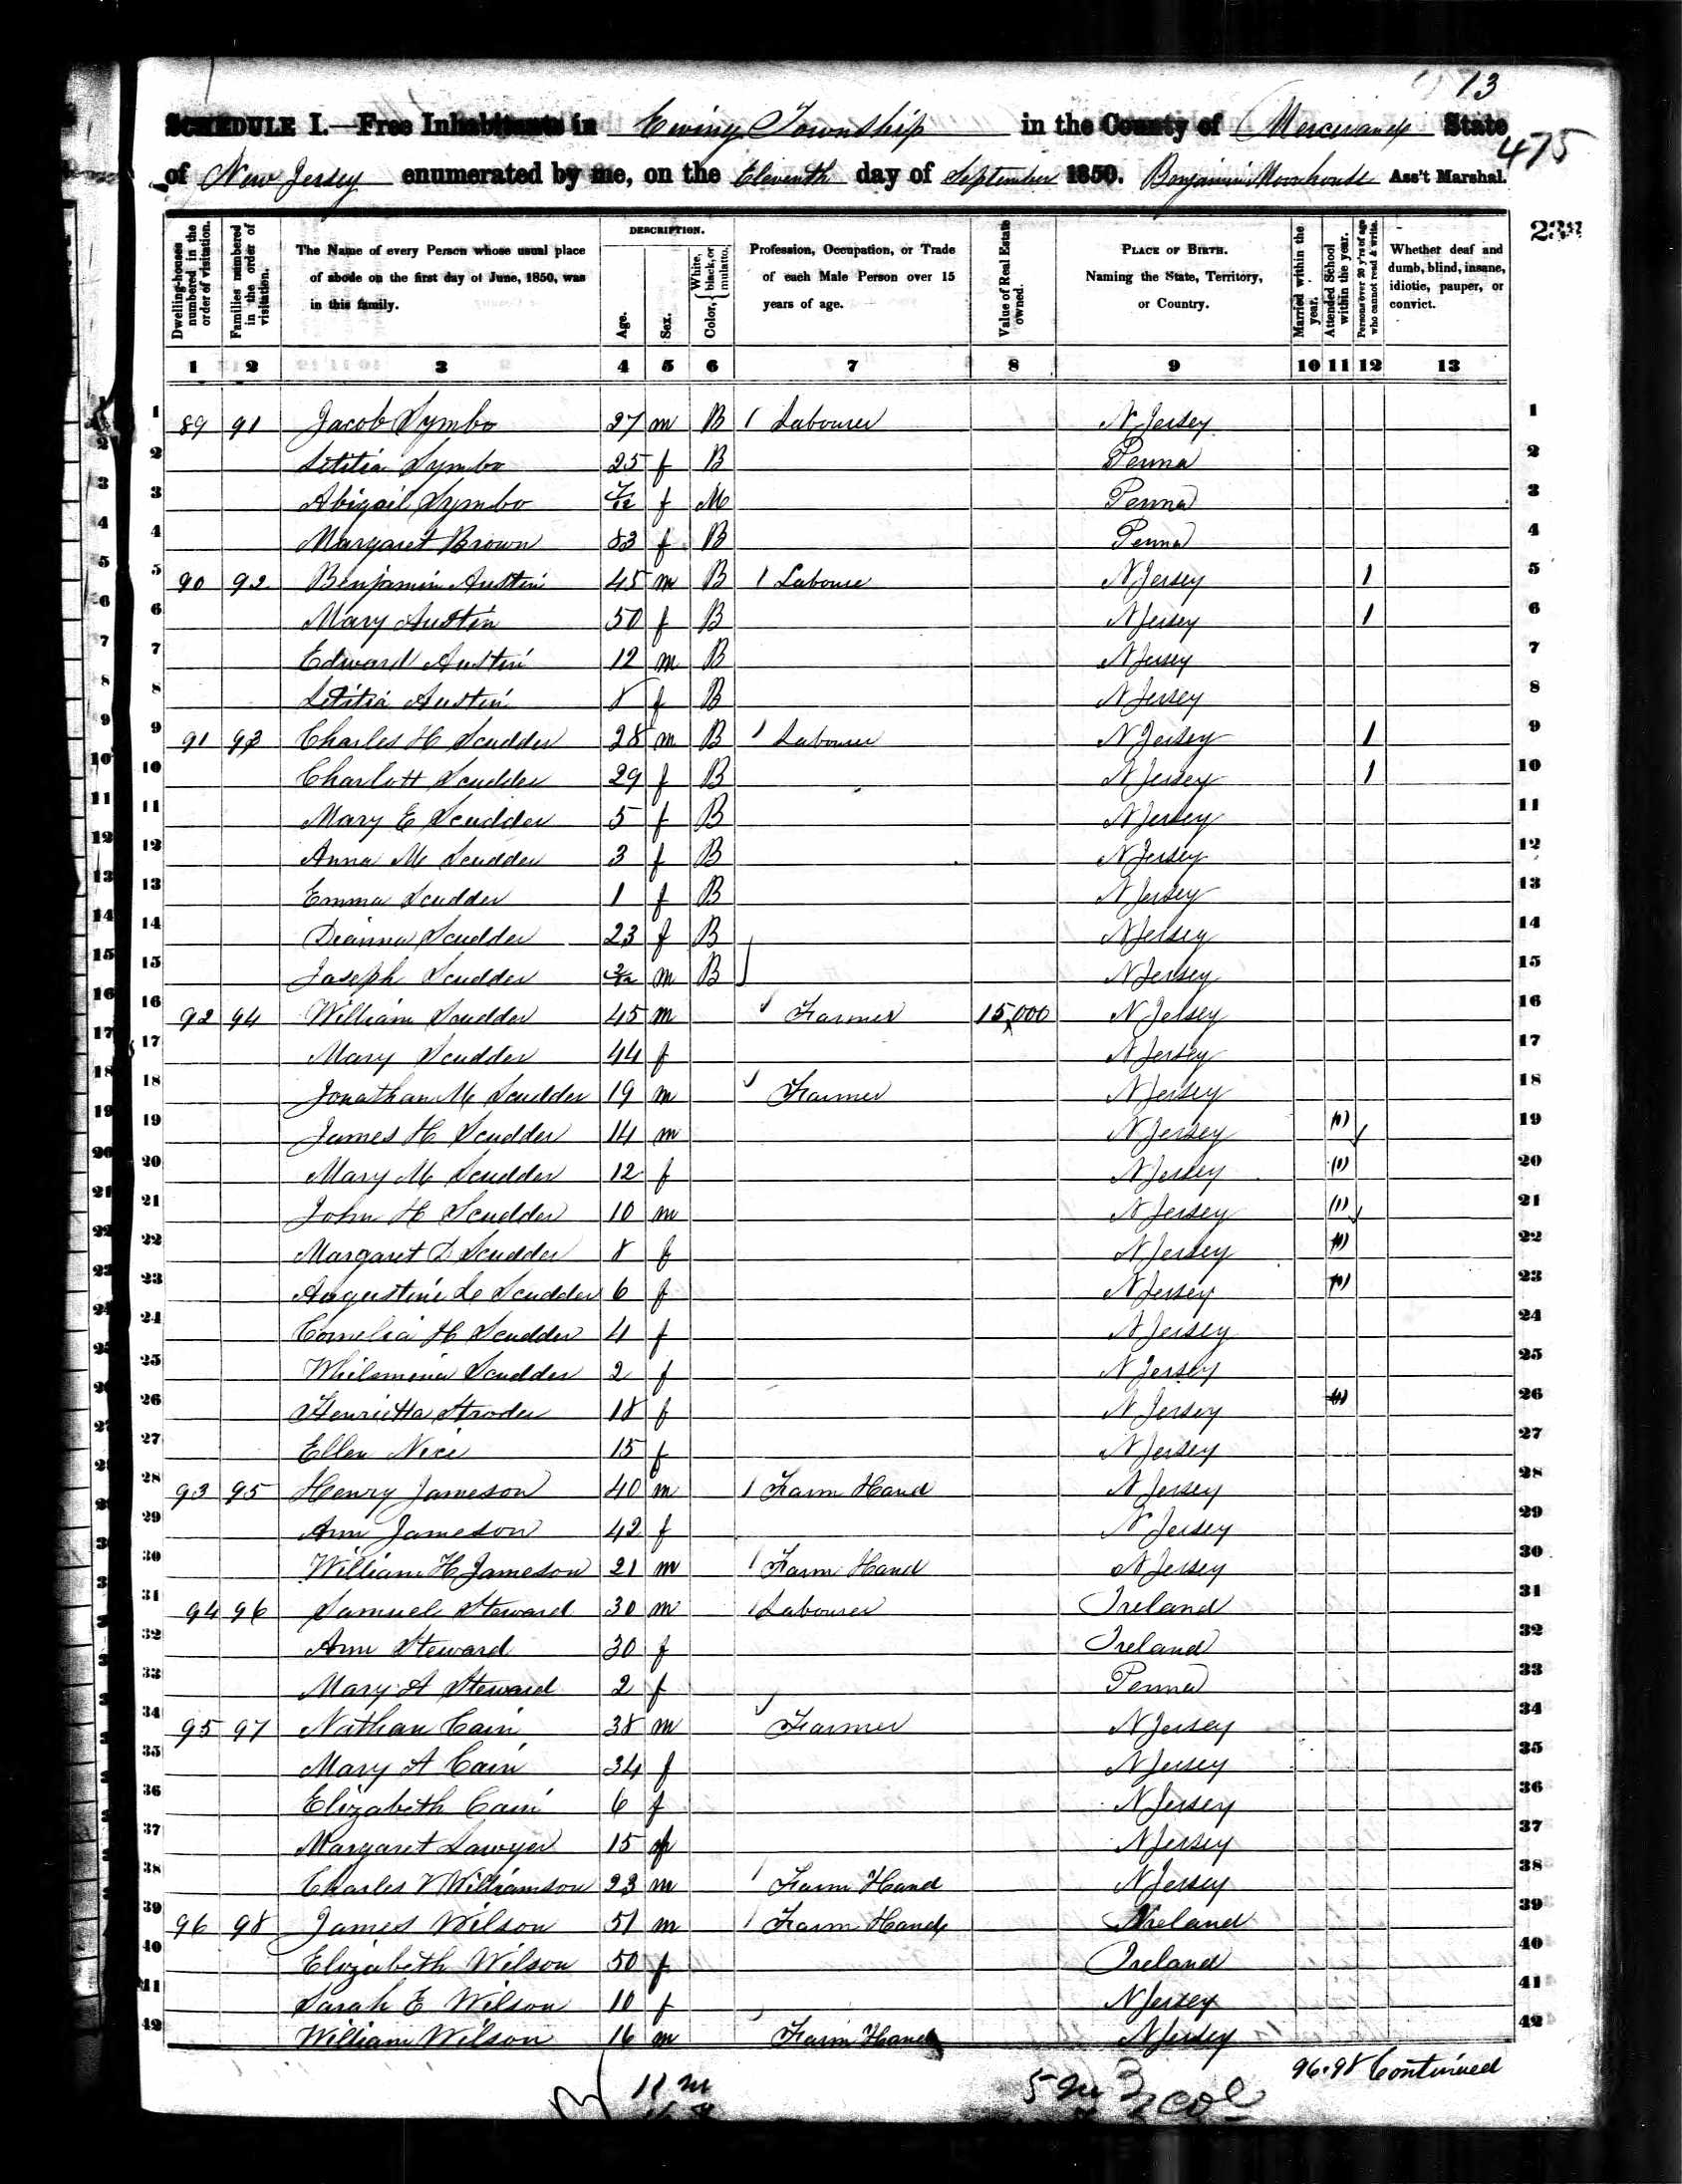 13
SCHEDULE I.—Free Inhabitants in Ewing Township in the County of Mercer and State
475
of New Jersey enumerated by me, on the Eleventh day of September 1850. Benjamin Moorhouse Ass't Marshal.
Dwelling-houses numbered in the order of visitation.
Families numbered in the order of visitation.
The Name of every Person whose usual place of abode on the first day of June, 1850, was in this family.
DESCRIPTION.
Age.
Sex.
Color, { White, black, or mulatto.
Profession, Occupation, or Trade of each Male Person over 15 years of age.
Value of Real Estate owned.
PLACE OF BIRTH. Naming the State, Territory, or Country.
Married within the year.
Attended School within the year.
Persons over 20 y'rs of age who cannot read & write.
Whether deaf and dumb, blind, insane, idiotic, pauper, or convict.
1 2 3 4 5 6 7 8 9 10 11 12 13
1 89 91 Jacob Symbo 27 m B 1 Labourer N Jersey 1
2 Letitia Symbo 25 f B Penna 2
3 Abigail Symbo f M Penna 3
4 Margaret Brown 83 f B Penna 4
5 90 92 Benjamin Austin 45 m B 1 Laboure N Jersey 1 5
6 Mary Austin 50 f B N Jersey 1 6
7 Edward Austin 12 m B N Jersey 7
8 Letitia Austin 8 f B N Jersey 8
9 91 93 Charles H Scudder 28 m B 1 Labourer N Jersey 1 9
10 Charlott Scudder 29 f B N Jersey 1 10
11 Mary E Scudder 5 f B N Jersey 11
12 Anna M Scudder 3 f B N Jersey 12
13 Emma Scudder 1 f B N Jersey 13
14 Dianna Scudder 23 f B N Jersey 14
15 Joseph Scudder m B N Jersey 15
16 92 94 William Scudder 45 m Farmer 15,000 N Jersey 16
17 Mary Scudder 44 f N Jersey 17
18 Jonathan M Scudder 19 m Farmer N Jersey 18
19 James H Scudder 14 m N Jersey (1) 19
20 Mary M Scudder 12 f N Jersey (1) 20
21 John H Scudder 10 m N Jersey (1) 21
22 Margaret D Scudder 8 f N Jersey (1) 22
23 Augustine L Scudder 6 f N Jersey (1) 23
24 Cornelia H Scudder 4 f N Jersey 24
25 Whilemina Scudder 2 f N Jersey 25
26 Henrietta Stroder 18 f N Jersey (1) 26
27 Ellen Nice 15 f N Jersey 27
28 93 95 Henry Jameson 40 m 1 Farm Hand N Jersey 28
29 Ann Jameson 42 f N Jersey 29
30 William H Jameson 21 m 1 Farm Hand N Jersey 30
31 94 96 Samuel Steward 30 m 1 Labourer Ireland 31
32 Ann Steward 30 f Ireland 32
33 Mary A Steward 2 f Penna 33
34 95 97 Nathan Cain 38 m Farmer N Jersey 34
35 Mary A Cain 34 f N Jersey 35
36 Elizabeth Cain 6 f N Jersey 36
37 Margaret Sawyer 15 f N Jersey 37
38 Charles V Williamson 23 m 1 Farm Hand N Jersey 38
39 96 98 James Wilson 51 m 1 Farm Hand Ireland 39
40 Elizabeth Wilson 50 f Ireland 40
41 Sarah E Wilson 10 f N Jersey 41
42 William Wilson 16 m Farm Hand N Jersey 42
96.98 Continued
11 m
col